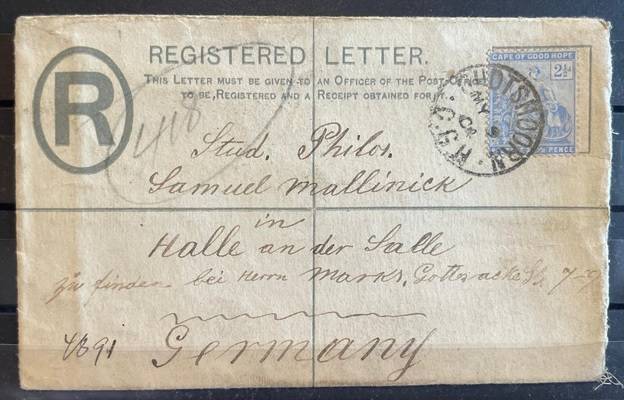 REGISTERED LETTER.
THIS LETTER MUST BE GIVEN TO AN OFFICER OF THE POST-OFFICE
TO BE REGISTERED AND A RECEIPT OBTAINED FOR IT.
R
CAPE OF GOOD HOPE
2½
PENCE
OUDTSHOORN
MY
C.G.H
418
Stud. Philos.
Samuel Mallinick
in
Halle an der Salle
zu finden bei Herrn Marks, Gottesacker Str. 7-9
4391
Germany